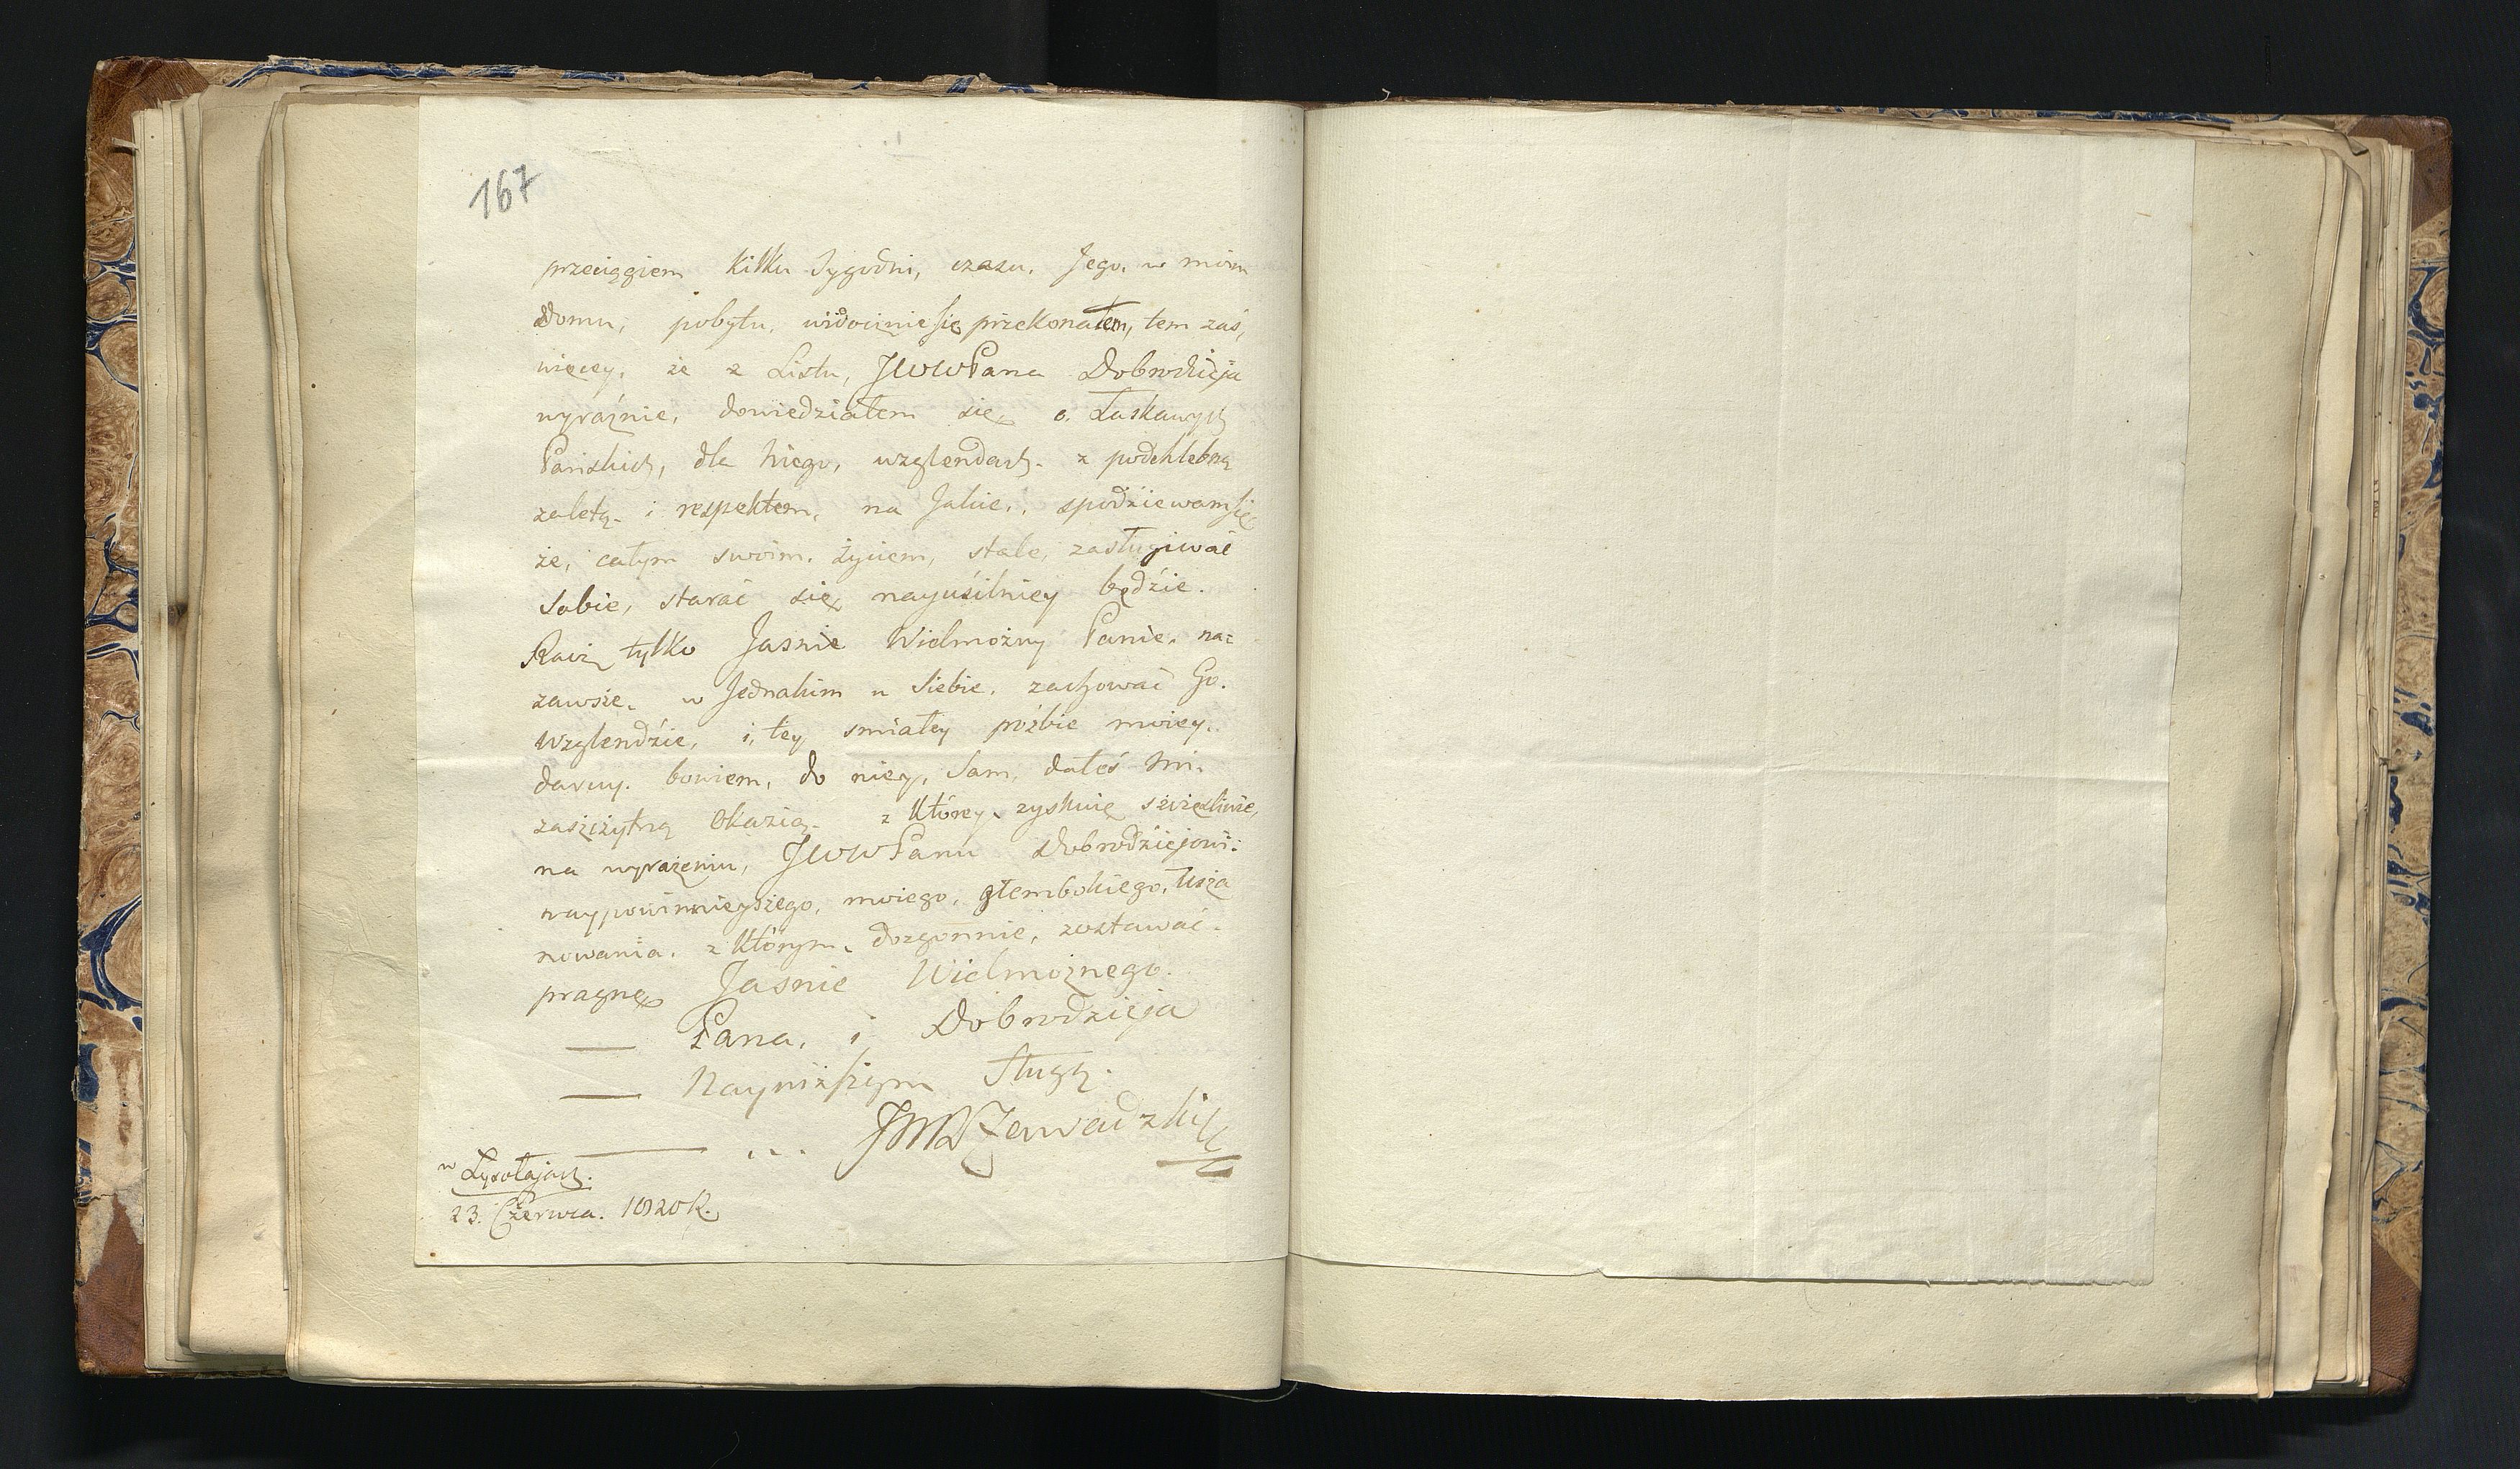 167
przeciągiem kilku Tygodni, czasu. Jego. w móm
Domu, pobytu. widocznie się przekonałem, tem zaś,
więcey. że z Listu, JWWPana Dobrodzieja
wyraźnie, dowiedziałem się o. Łaskawych
Pańskich, dla niego, wzglendach. z podchlebną
zaletą. i respektem, na Jakie., spodziewam się
że, całym swoim. życiem, stale, zasługiwać
Sobie, starać się nayusilniey będzie.
Racz tylko Jasnie Wielmożny Panie. na=
zawsze. w Jednakim u Siebie. zachować Go.
Wzglendzie, i, tey smiałey próźbie moiey.
daruy. bowiem, do niey, Sam, dałeś mi.
zaszczytną Okazią. z Którey. zyskuię szczęsliwie,
na wyrażeniu, JWWPanu Dobrodziejowi:
naypowinnieyszego, moiego, głembokiego, Usza
nowania. z Którym. dozgonnie, zostawać.
pragnę Jasnie Wielmożnego.
Pana. i Dobrodzieja
Nayniższym Sługą.
JMD Zawadzki
w Łysołajach.
23. Czerwca. 1820 R.